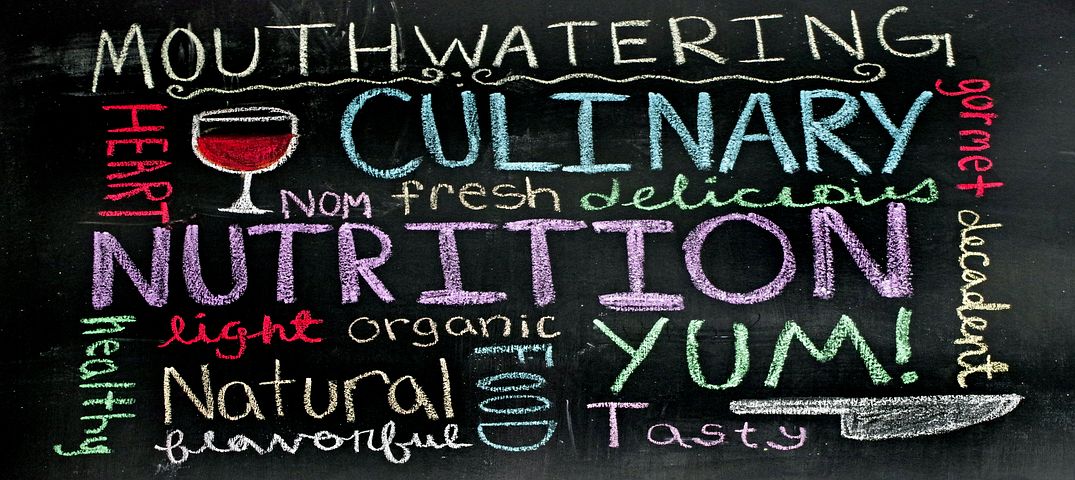 MOUTHWATERING
HEART
CULINARY
gormet
NOM fresh delicious
NUTRITION
decadent
healthy
light organic
YUM!
Natural
FOOD
flavorful
Tasty